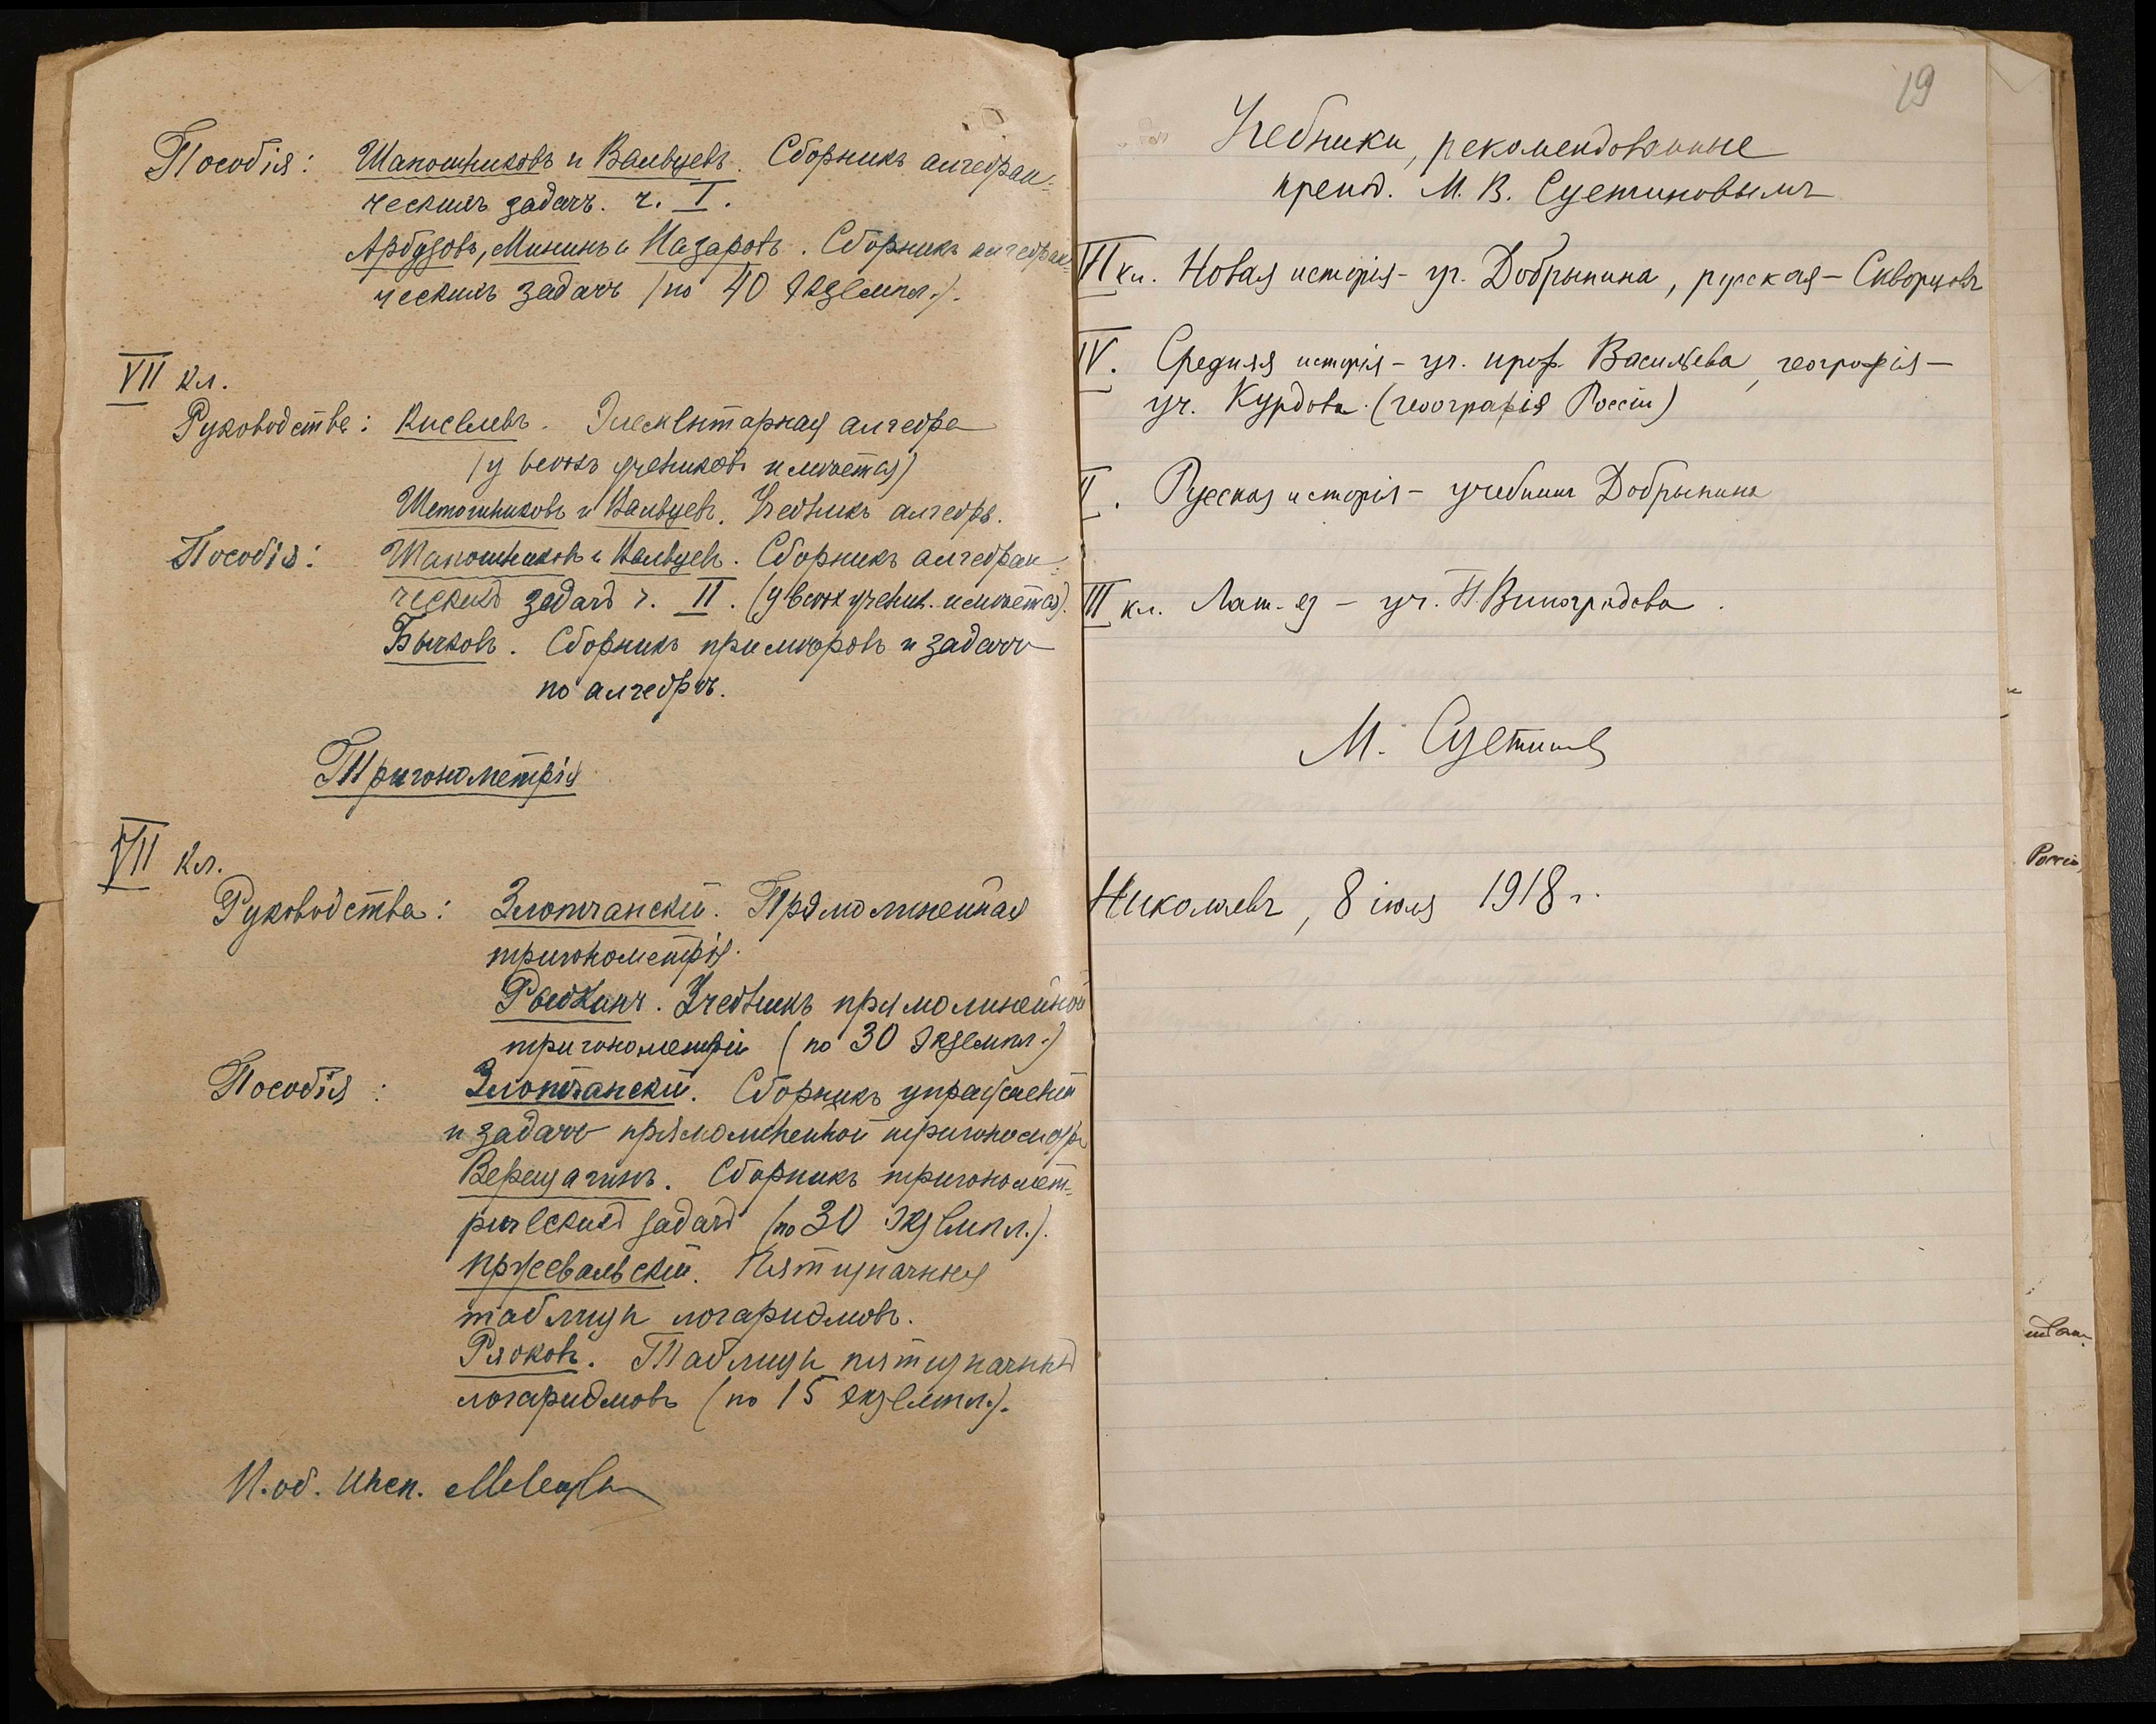 Пособія: Шапошниковъ и Вальцевъ. Сборникъ алгебраи-
ческихъ задачъ. ч. I.
Арбузовъ, Мининъ и Назаровъ. Сборникъ алгебраи-
ческихъ задачъ (по 40 экземпл.).
VII кл.
Руководства: Киселевъ. Элементарная алгебра
(у всѣхъ учениковъ имѣется)
Шапошниковъ и Вальцевъ. Учебникъ алгебры.
Пособія: Шапошниковъ и Вальцевъ. Сборникъ алгебраи-
ческихъ задачъ ч. II. (у всѣхъ учен. имѣется).
Бычковъ. Сборникъ примѣровъ и задачъ
по алгебрѣ.
Тригонометрія
VII кл.
Руководства: Злотчанскій. Прямолинейная
тригонометрія.
Рыбкинъ. Учебникъ прямолинейной
тригонометріи (по 30 экземпл.)
Пособія: Злотчанскій. Сборникъ упражненій
и задачъ прямолинейной тригонометр
Верещагинъ. Сборникъ тригономет-
рическихъ задачъ (по 30 экземпл.).
Пржевальскій. Пятизначныя
таблицы логариѳмовъ.
Рябковъ. Таблицы пятизначныхъ
логариѳмовъ (по 15 экземпл.).
И. об. Инсп.
19
Учебники, рекомендованные
препод. М. В. Суетиновымъ
VI кл. Новая исторія - уч. Добрынина, русская - Скворцовъ
IV. Средняя исторія - уч. проф. Васильева, географія -
уч. Курдова. (географія Россіи)
II. Русская исторія - учебникъ Добрынина
III кл. Лат. яз - уч. Н. Виноградова.
М. Суетинов
Николаевъ, 8 іюля 1918 г.
Россіи,